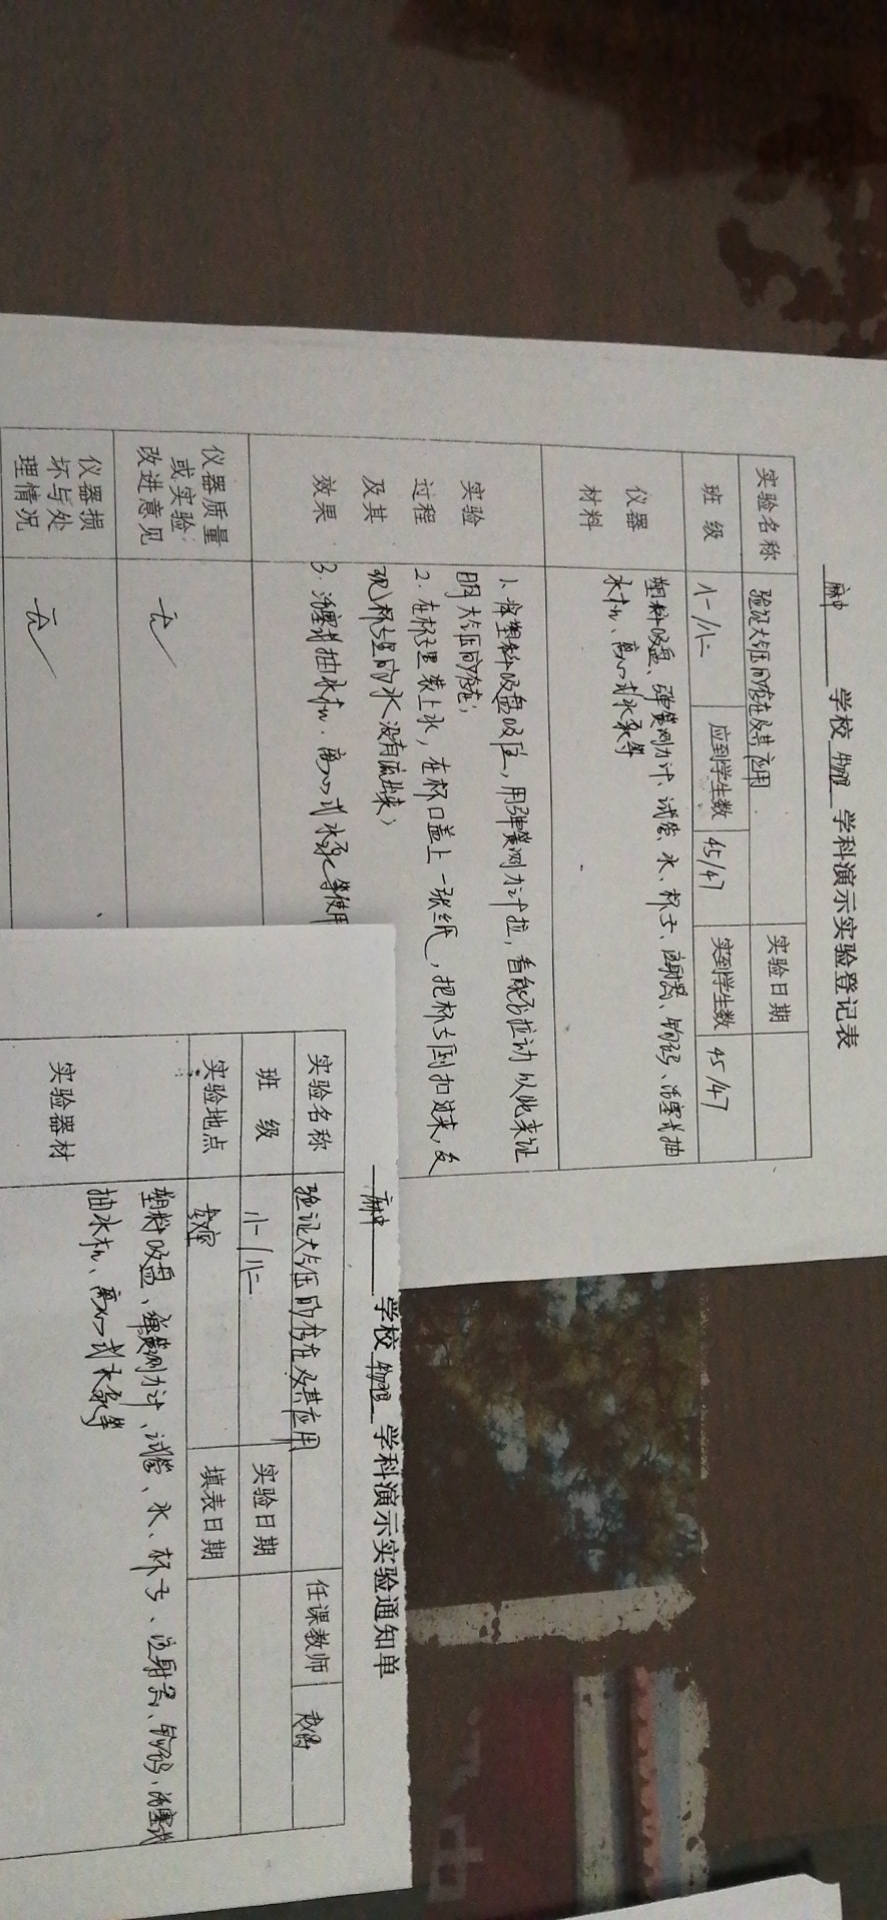 麻中 学校 物理 学科演示实验登记表
实验名称 验证大气压的存在及其应用 实验日期
班 级 八一/八二 应到学生数 45/47 实到学生数 45/47
仪器
材料
塑料吸盘、弹簧测力计、试管、水、杯子、注射器、钩码、活塞式抽
水机、离心式水泵等
实验
过程
及其
效果
1. 将塑料吸盘吸住，用弹簧测力计拉，看能否拉动以此来证
明大气压的存在；
2. 在杯子里装上水，在杯口盖上一张纸，把杯子倒扣过来，发
现杯子里的水没有流出来；
3. 活塞式抽水机、离心式水泵等使用
仪器质量
或实验
改进意见
无
仪器损
坏与处
理情况
无
麻中 学校 物理 学科演示实验通知单
实验名称 验证大气压的存在及其应用 任课教师
班 级 八一/八二 实验日期
实验地点 教室 填表日期
实验器材
塑料吸盘、弹簧测力计、试管、水、杯子、注射器、钩码、活塞式
抽水机、离心式水泵等